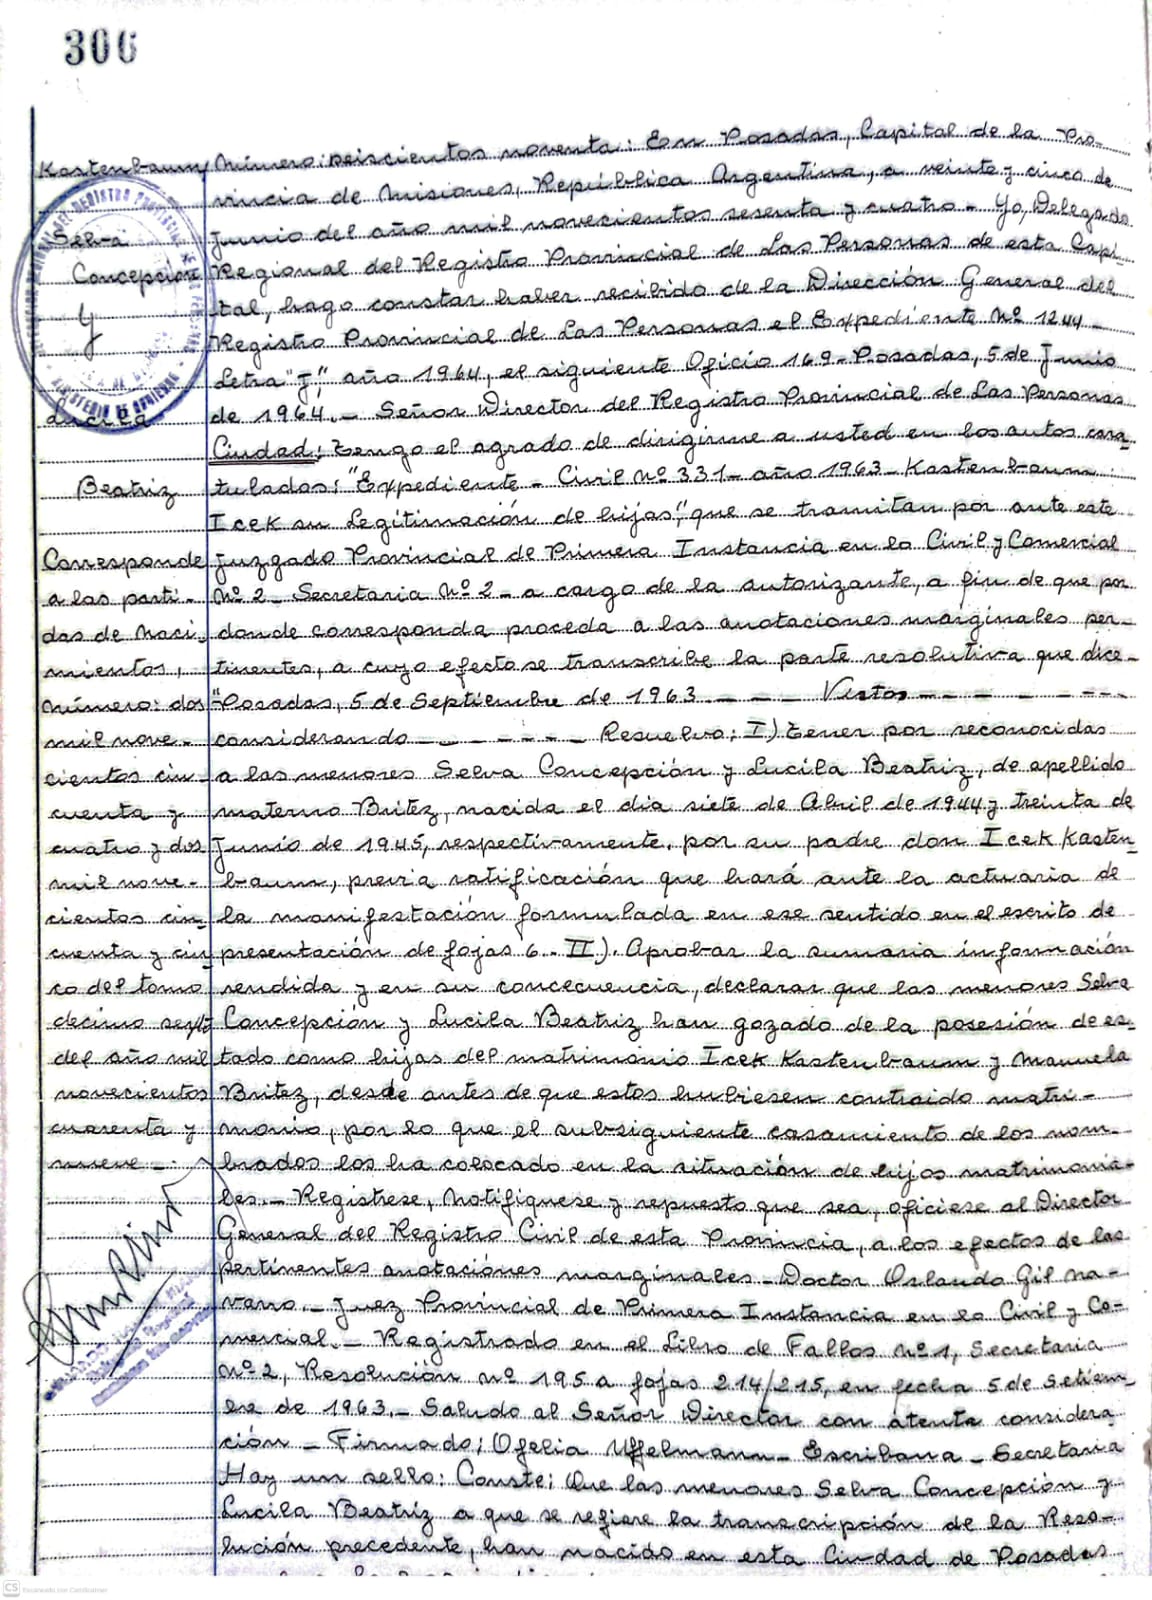 306
Kastenbaum
Selva
Concepción
y
Lucila
Beatriz
Corresponde
a las parti-
das de naci-
mientos,
número: dos
mil nove-
cientos cin-
cuenta y
cuatro y dos
mil nove-
cientos cin-
cuenta y cin-
co del tomo
decimo sexto
del año mil
novecientos
cuarenta y
nueve
Número: seiscientos noventa: En Posadas, Capital de la Pro-
vincia de Misiones, República Argentina, a veinte y cinco de
Junio del año mil novecientos sesenta y cuatro - Yo, Delegado
Regional del Registro Provincial de Las Personas de esta Capi-
tal, hago constar haber recibido de la Dirección General del
Registro Provincial de Las Personas el Expediente Nº 1244-
Letra "J," año 1964, el siguiente Oficio 169- Posadas, 5 de Junio
de 1964.- Señor Director del Registro Provincial de Las Personas
Ciudad: Tengo el agrado de dirigirme a usted en los autos cara-
tulados: "Expediente - Civil Nº 331- año 1963- Kastenbaum
Icek su Legitimación de hijas," que se tramitan por ante este
Juzgado Provincial de Primera Instancia en lo Civil y Comercial
Nº 2 - Secretaria Nº 2 - a cargo de la autorizante, a fin de que por
donde corresponda proceda a las anotaciones marginales per-
tinentes, a cuyo efecto se transcribe la parte resolutiva que dice-
"Posadas, 5 de Septiembre de 1963 - - - Vistos - - - - - - -
considerando - - - - - - Resuelvo: I) Tener por reconocidas
a las menores Selva Concepción y Lucila Beatriz, de apellido
materno Britez, nacida el día siete de Abril de 1944 y treinta de
Junio de 1945, respectivamente, por su padre don Icek Kasten-
baum, previa ratificación que hará ante la actuaria de
la manifestación formulada en ese sentido en el escrito de
presentación de fojas 6.- II). Aprobar la sumaria información
rendida y en su concecuencia, declarar que las menores Selva
Concepción y Lucila Beatriz han gozado de la posesión de es-
tado como hijas del matrimonio Icek Kastenbaum y Manuela
Britez, desde antes de que estos hubiesen contraido matri-
monio, por lo que el subsiguiente casamiento de los nom-
brados los ha colocado en la situación de hijos matrimonia-
les.- Registrese, Notifiquese y repuesto que sea, oficiese al Director
General del Registro Civil de esta Provincia, a los efectos de las
pertinentes anotaciones marginales - Doctor Orlando Gil Na-
varro.- Juez Provincial de Primera Instancia en lo Civil y Co-
mercial.- Registrado en el Libro de Fallos nº 1, Secretaria
Nº 2, Resolución nº 195 a fojas 214/215, en fecha 5 de Setiem-
bre de 1963.- Saludo al Señor Director con atenta considera-
ción - Firmado: Ofelia Uffelmann - Escribana - Secretaria
Hay un sello: Conste: Que las menores Selva Concepción y
Lucila Beatriz a que se refiere la transcripción de la Reso-
lución precedente, han nacido en esta Ciudad de Posadas
CS Escaneado con CamScanner